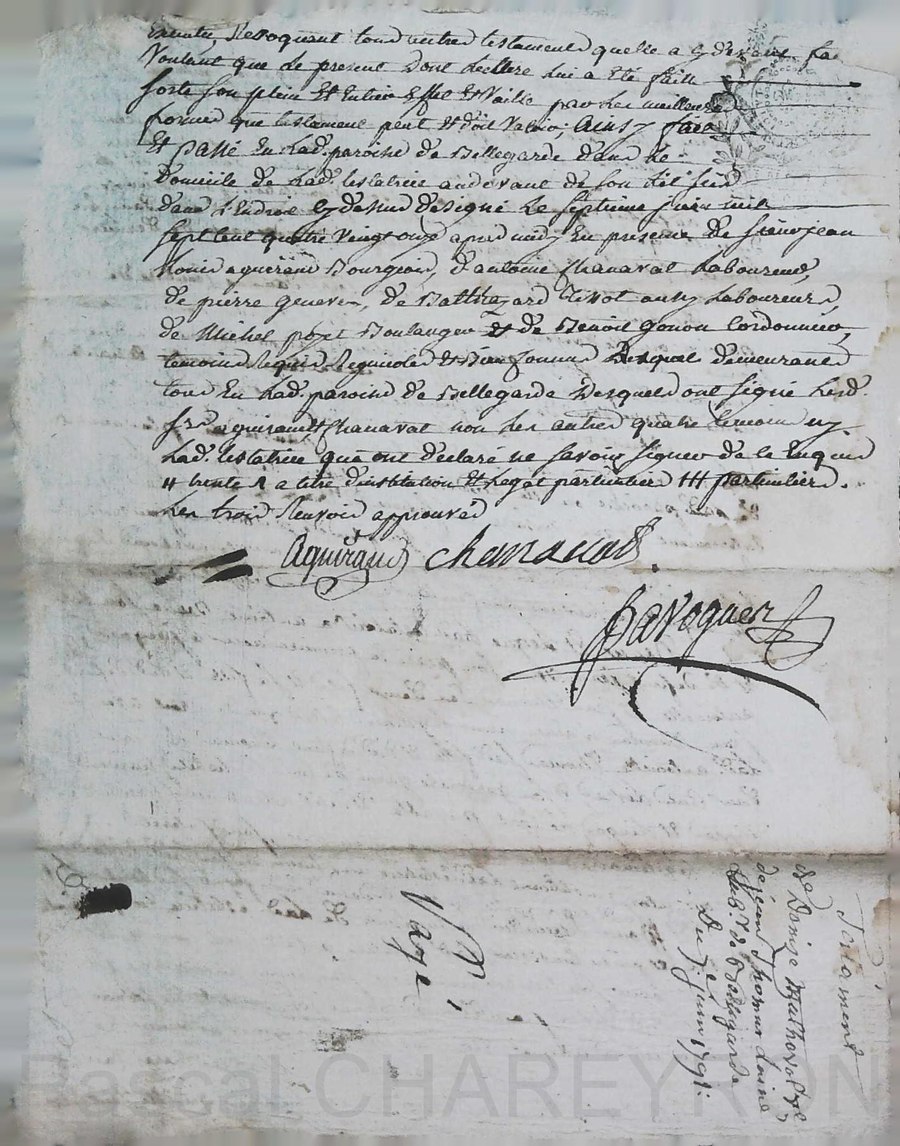 Revoquant tous autres testaments quelle a cy devant fai
Voulant que le present dont lecture lui a été faitte
sorte son plein Et Entier Effet Et Vaille par les meilleures
formes que testament peut Et doit Valoir, Ainsy fait
Et passé En Lad. paroisse de Bellegarde dans le
domicile de Lad. testatrice audevant de son lit
dans L'endroit cy dessus designé Le septieme juin mil
sept Cent quatre Vingt onze apres midy En presence de sieur jean
Louis aguiraud Bourgeois, d'antoine Chanavat Laboureur,
de pierre, de Balthazard Tissot aussy Laboureurs,
de Michel Boulanger Et de Benoit gonon Cordonnier,
temoins Requis Et Bien Connus demeurants
tous En Lad. paroisse de Bellegarde Desquels ont signé Lesd.
Srs aguiraud Et Chanavat non les autres quatre temoins ny
Lad. testatrice qui ont declaré ne savoir signer de ce Enquis
a titre d'institution Et Legat particulier particuliers.
Les trois Renvois approuvés
Aguiraud Chanavat
Testament
de Jean Thomas Lainé
Lab. de Bellegarde
Du 7e juin 1791.
Pascal CHAREYRON